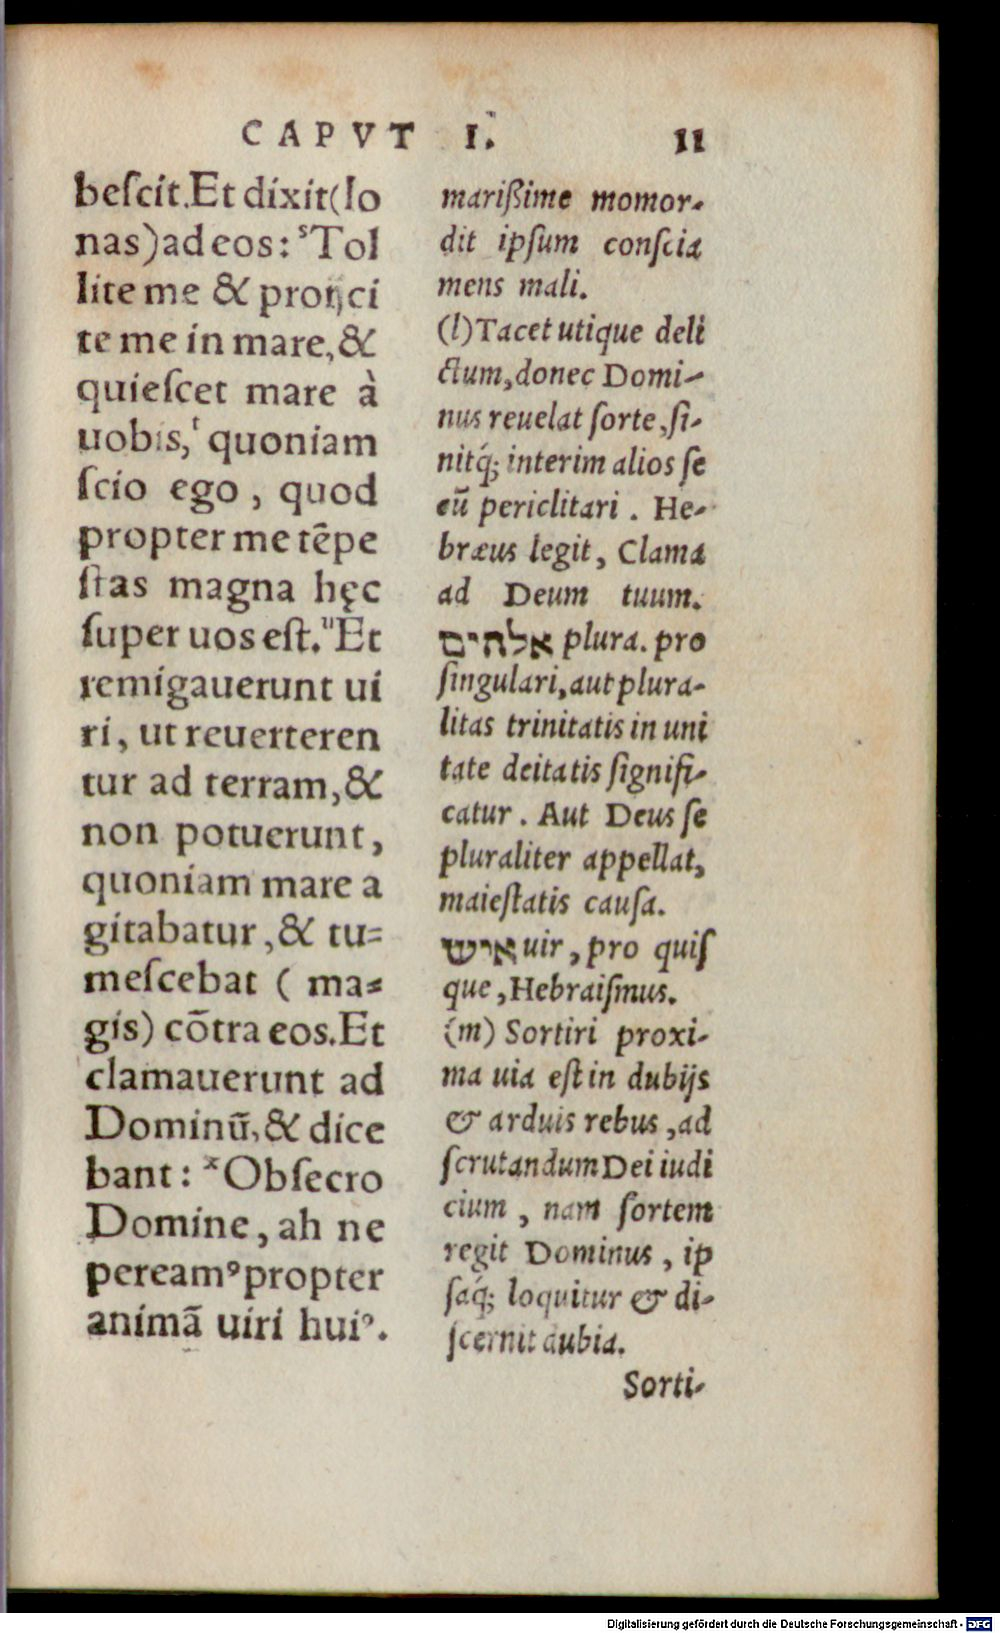 CAPVT I. 11
beſcit. Et dixit (Io
nas) ad eos: ˢTol
lite me & proijci
te me in mare, &
quieſcet mare à
uobis, ᵗ quoniam
ſcio ego, quod
propter me tēpe
ſtas magna hęc
ſuper uos eſt. ᵘEt
remigauerunt ui
ri, ut reuerteren
tur ad terram, &
non potuerunt,
quoniam mare a
gitabatur, & tu=
meſcebat ( ma=
gis) cōtra eos. Et
clamauerunt ad
Dominū, & dice
bant: ˣObſecro
Domine, ah ne
peream⁹ propter
animā uiri huiꝰ.
marißime momor-
dit ipſum conſcia
mens mali.
(l) Tacet utique deli
ctum, donec Domi-
nus reuelat ſorte, ſi-
nitq́; interim alios ſe
cū periclitari. He-
bræus legit, Clama
ad Deum tuum.
אלהים plura. pro
ſingulari, aut plura-
litas trinitatis in uni
tate deitatis ſignifi-
catur. Aut Deus ſe
pluraliter appellat,
maieſtatis cauſa.
איש uir, pro quiſ
que, Hebraiſmus.
(m) Sortiri proxi-
ma uia eſt in dubijs
& arduis rebus, ad
ſcrutandum Dei iudi
cium, nam ſortem
regit Dominus, ip
ſaq́; loquitur & di-
ſcernit dubia.
Sorti-
Digitalisierung gefördert durch die Deutsche Forschungsgemeinschaft - DFG